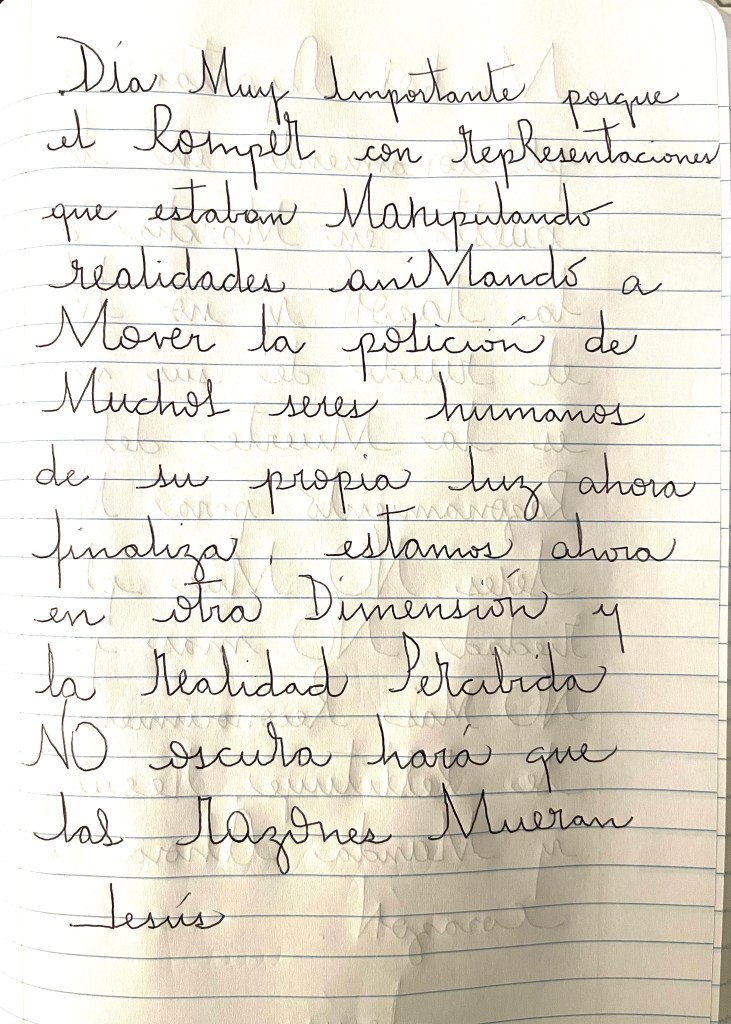 Día Muy Importante porque
el RompeR con RepResentaciones
que estaban Manipulando
realidades aniMandó a
Mover la posición de
Muchos seres humanos
de su propia luz ahora
finaliza, estamos ahora
en otra Dimensión y
la Realidad Percibida
NO oscura hará que
las RazOnes Mueran
Jesús